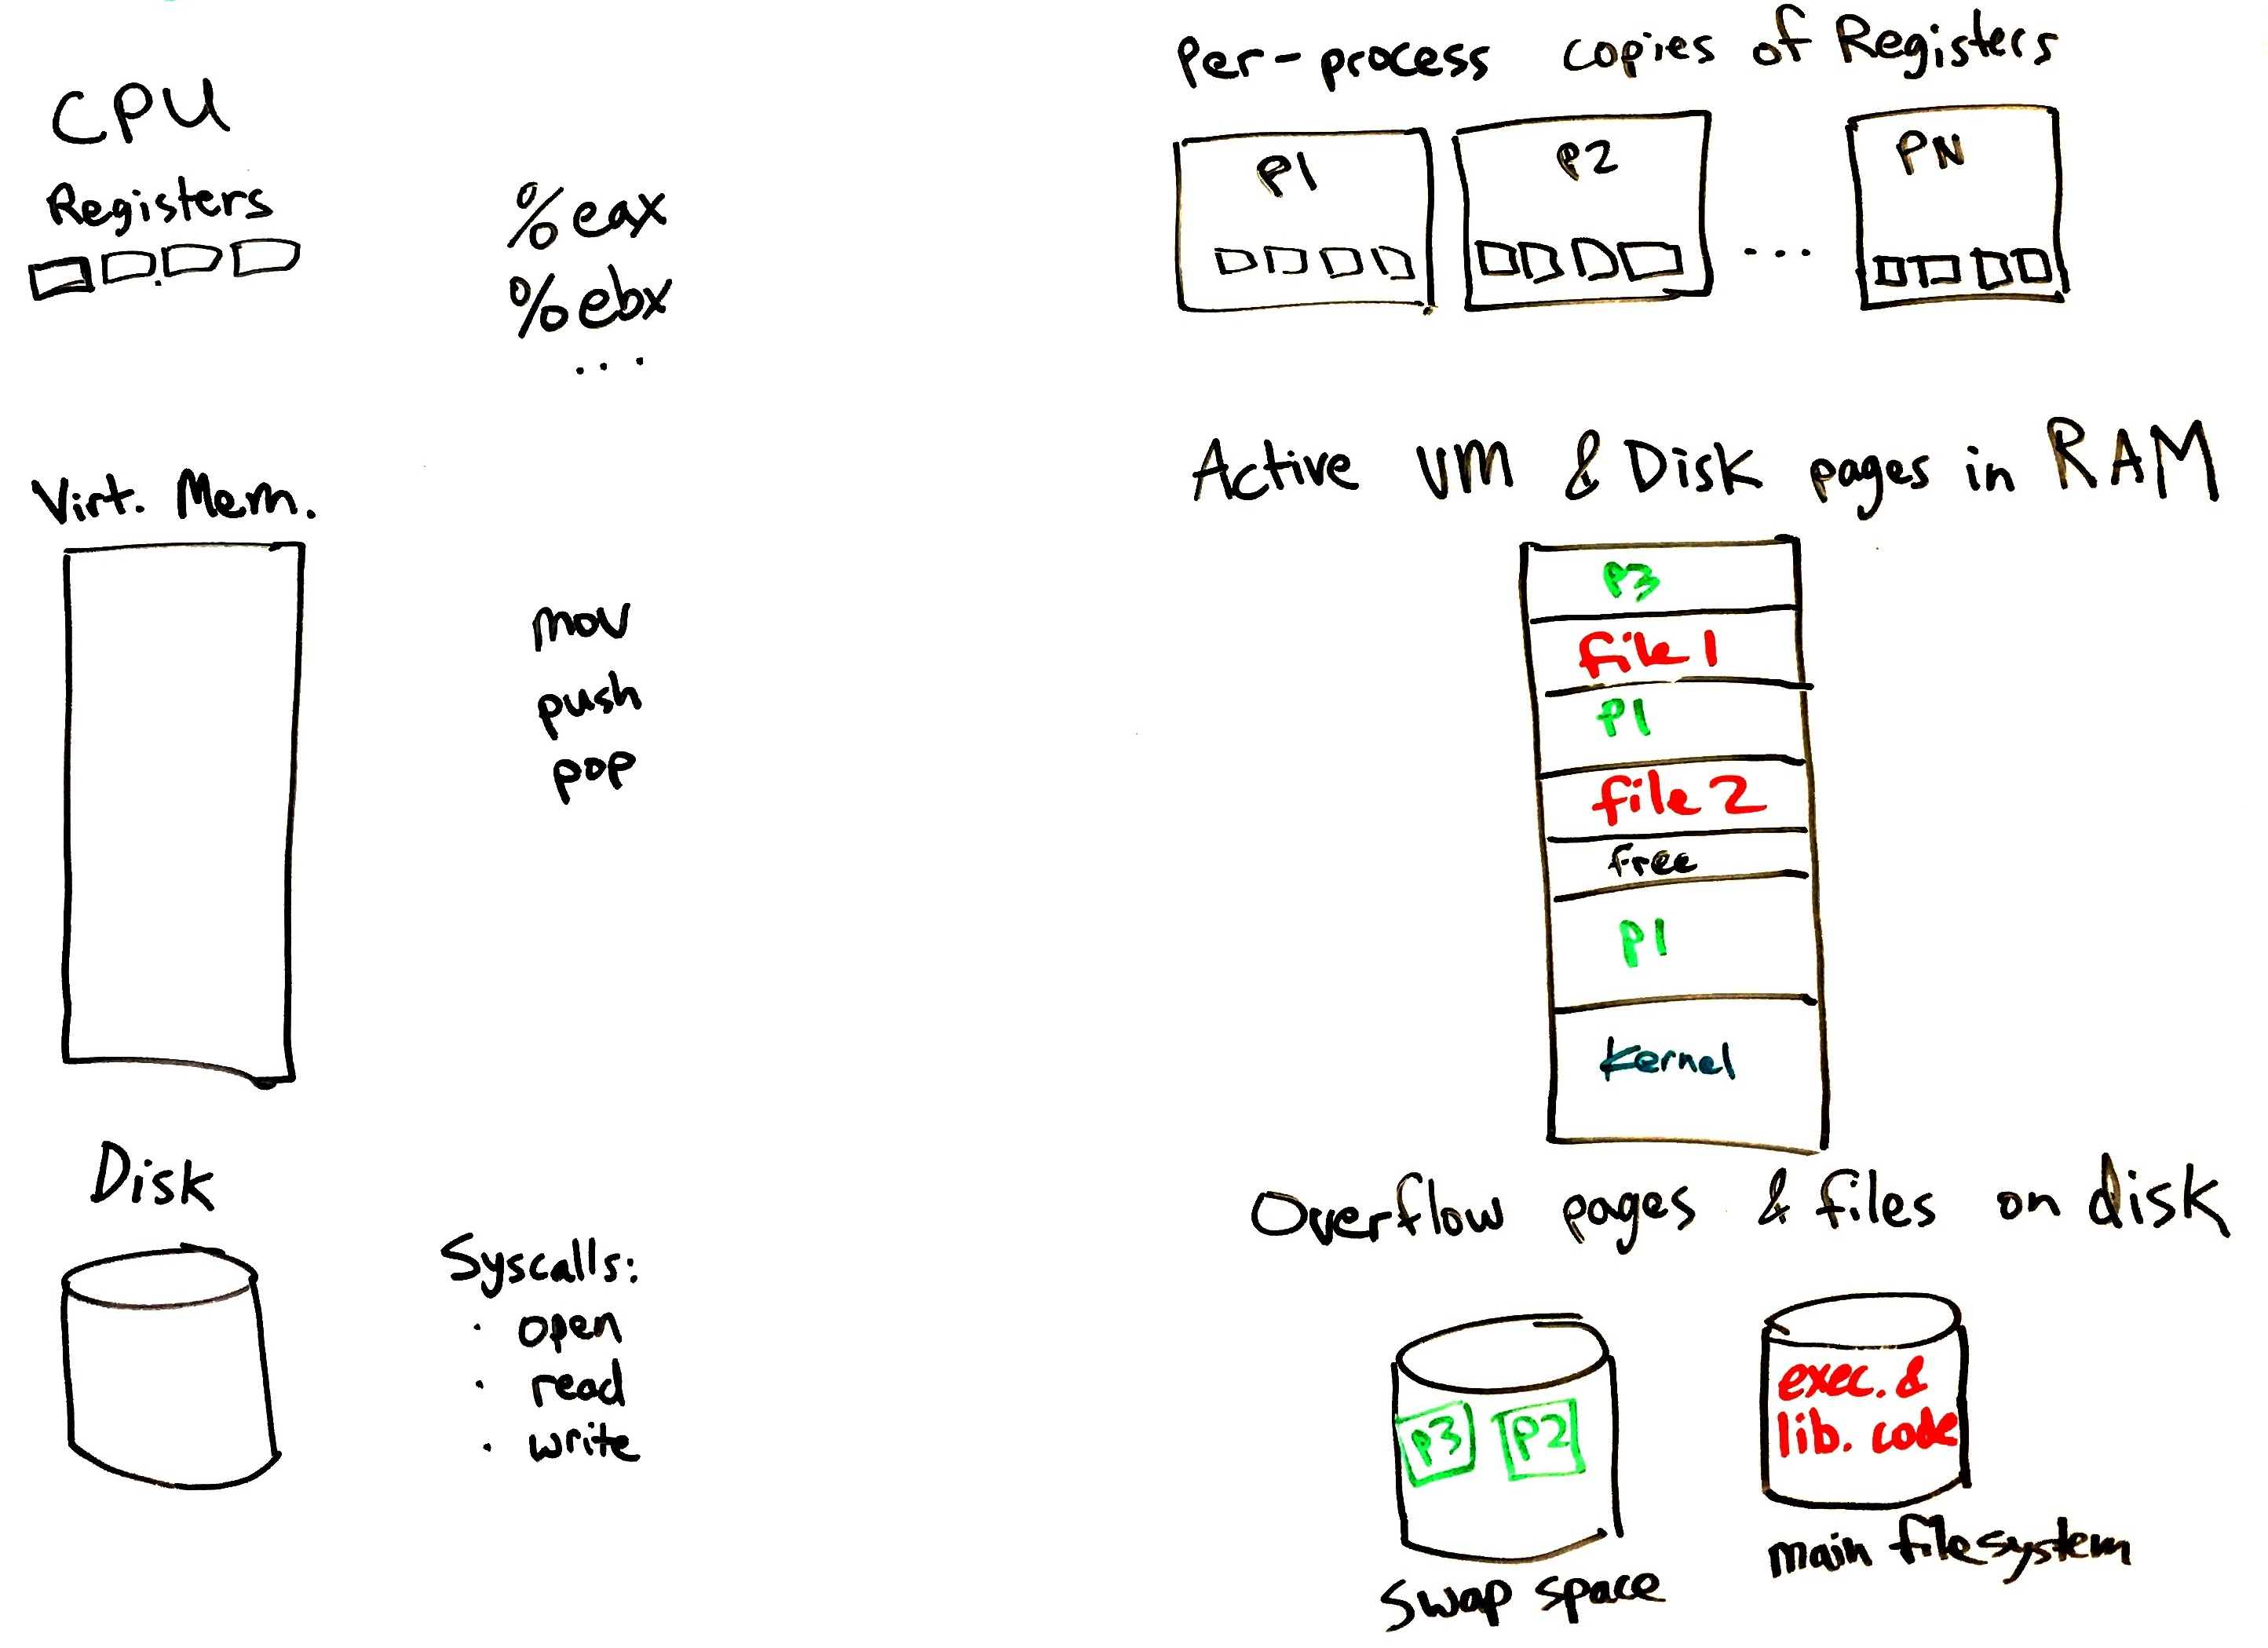 CPU
Registers
%eax
%ebx
...
Virt. Mem.
mov
push
pop
Disk
Syscalls:
· open
· read
· write
Per-process copies of Registers
P1 P2 ... PN
Active VM & Disk pages in RAM
P3
file 1
P1
file 2
free
P1
Kernel
Overflow pages & files on disk
P3 P2
swap space
exec. &
lib. code
main filesystem